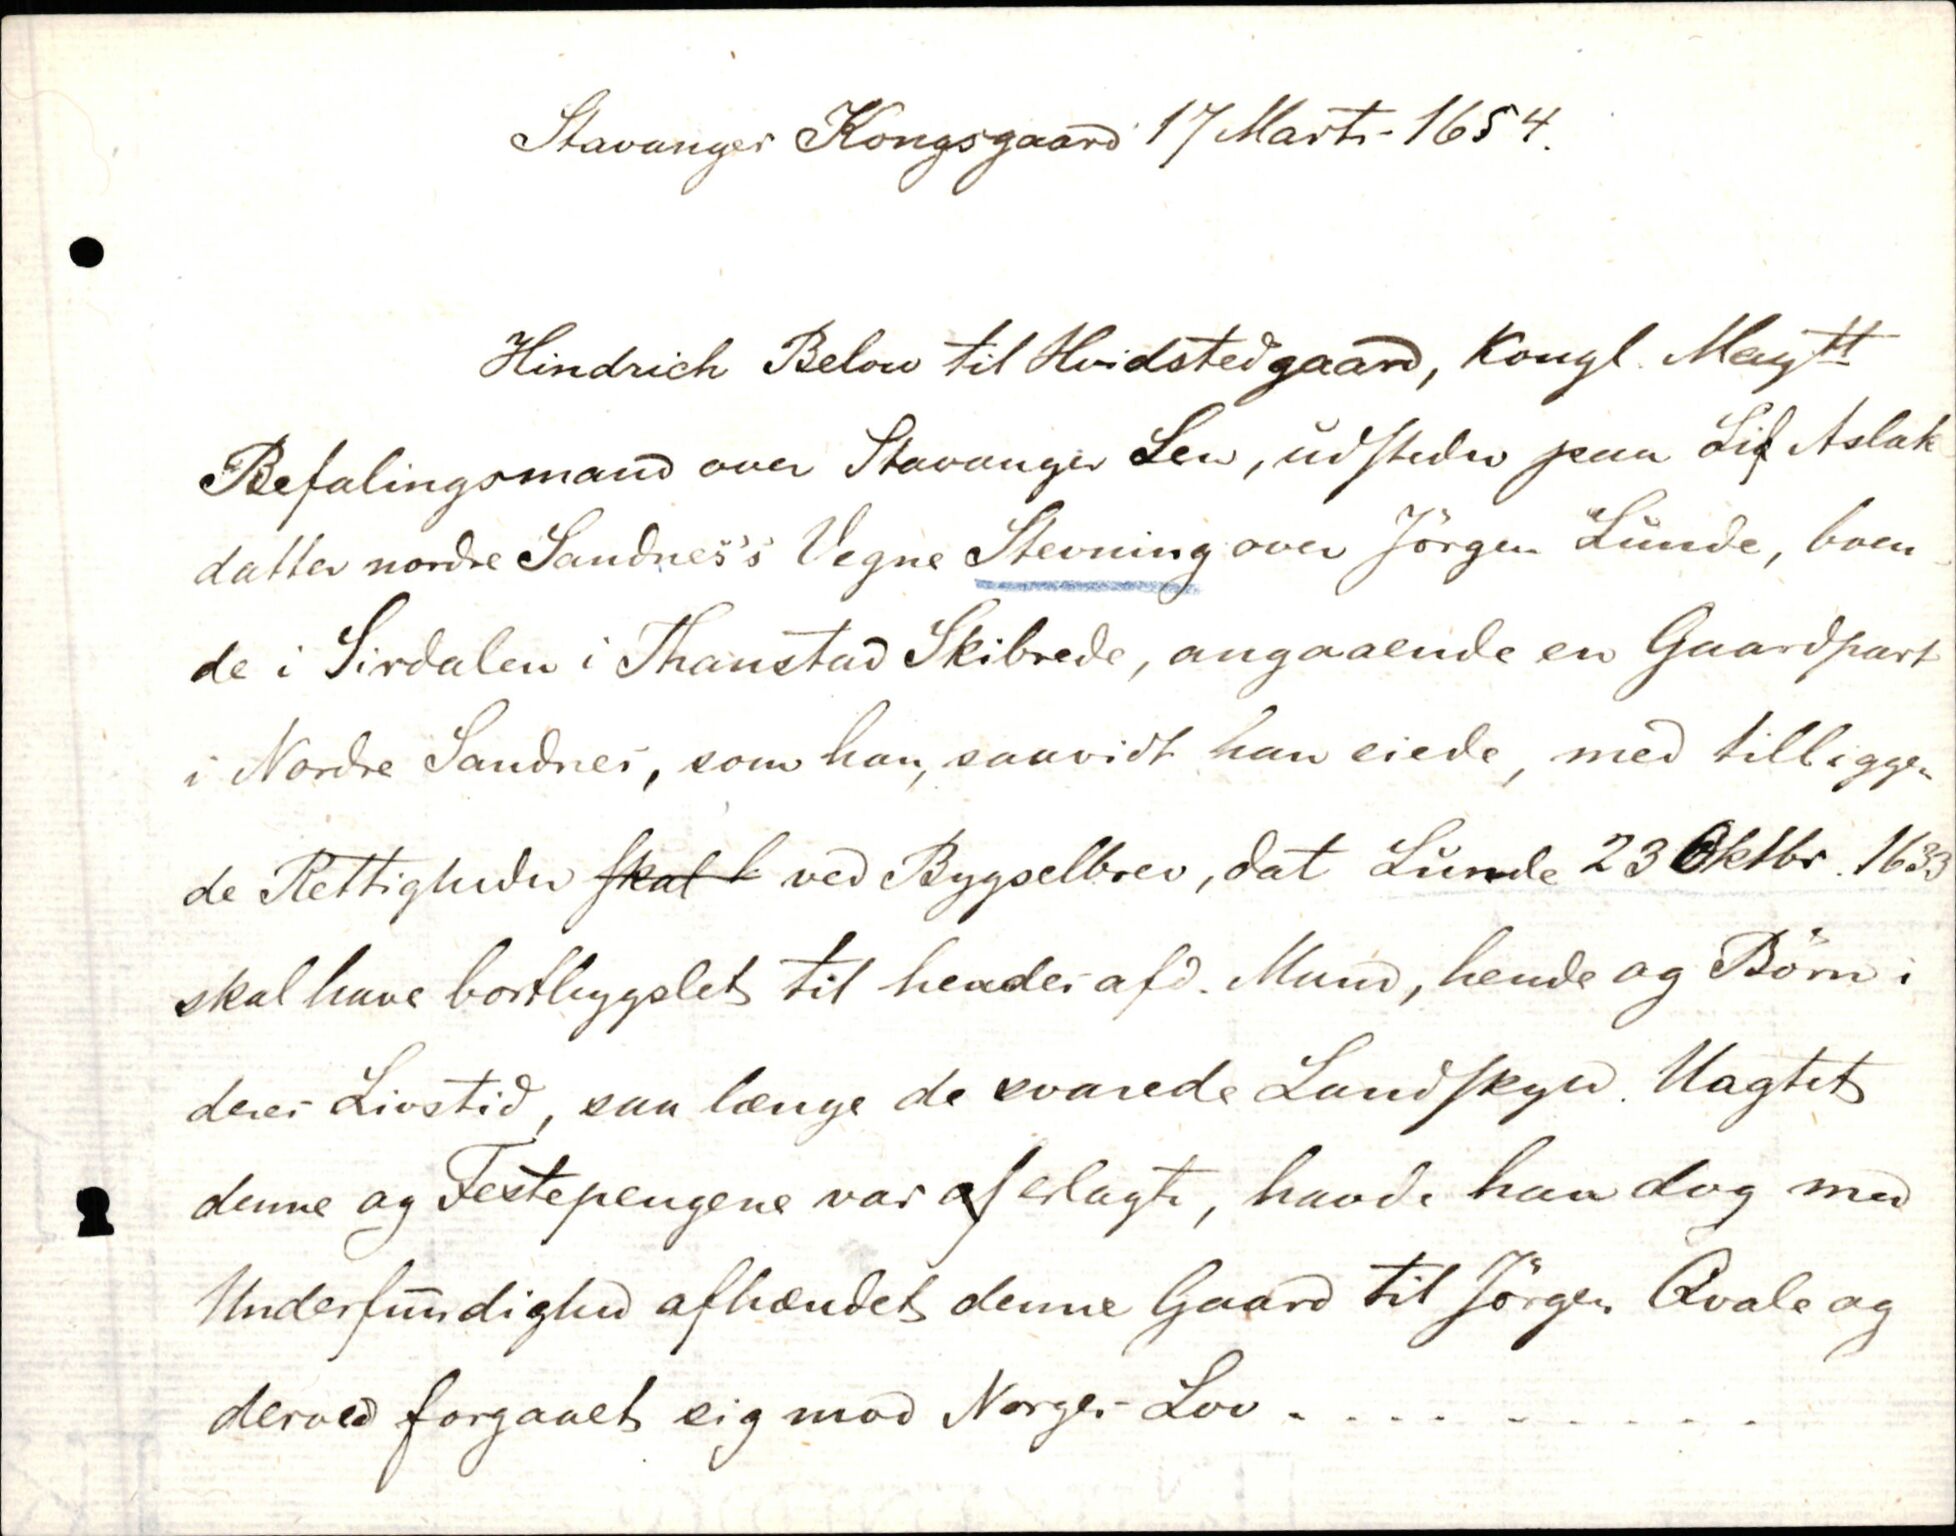 Stavanger Kongsgaard 17 Marts 1654.
Hindrich Below til Hvidstedgaard, Kongl. Maytt
Befalingsmand over Stavanger Len, udsteder paa Lif Aslak
datter nordre Sandnes's Vegne Stevning over Jörgen Lunde, boen-
de i Sirdalen i Thanstad Skibrede, angaaende en Gaardpart
i Nordre Sandnes, som han, saavidt han eiede, med tilliggen
de Rettigheder skal h ved Bygselbrev, dat Lunde 23 Oktbr. 1633
skal have bortbygslet til hendes afd. Mand, hende og Börn i
deres Livstid, saa længe de svarede Landskyld. Uagtet
denne og Festepengene var af erlagte, havde han dog med
Underfundighed afhændet denne Gaard til Jörgen Qvale og
derved forgaaet sig mod Norges Lov . . . . . . . . . .